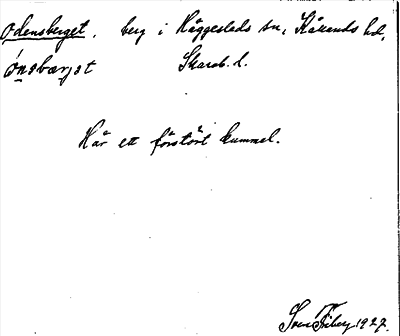 Odensberget, berg i Häggesleds sn, Kållands hd,
ónsbærjət Skarab. l.
Här ett förstört kummel.
Sven Tiberg 1927.